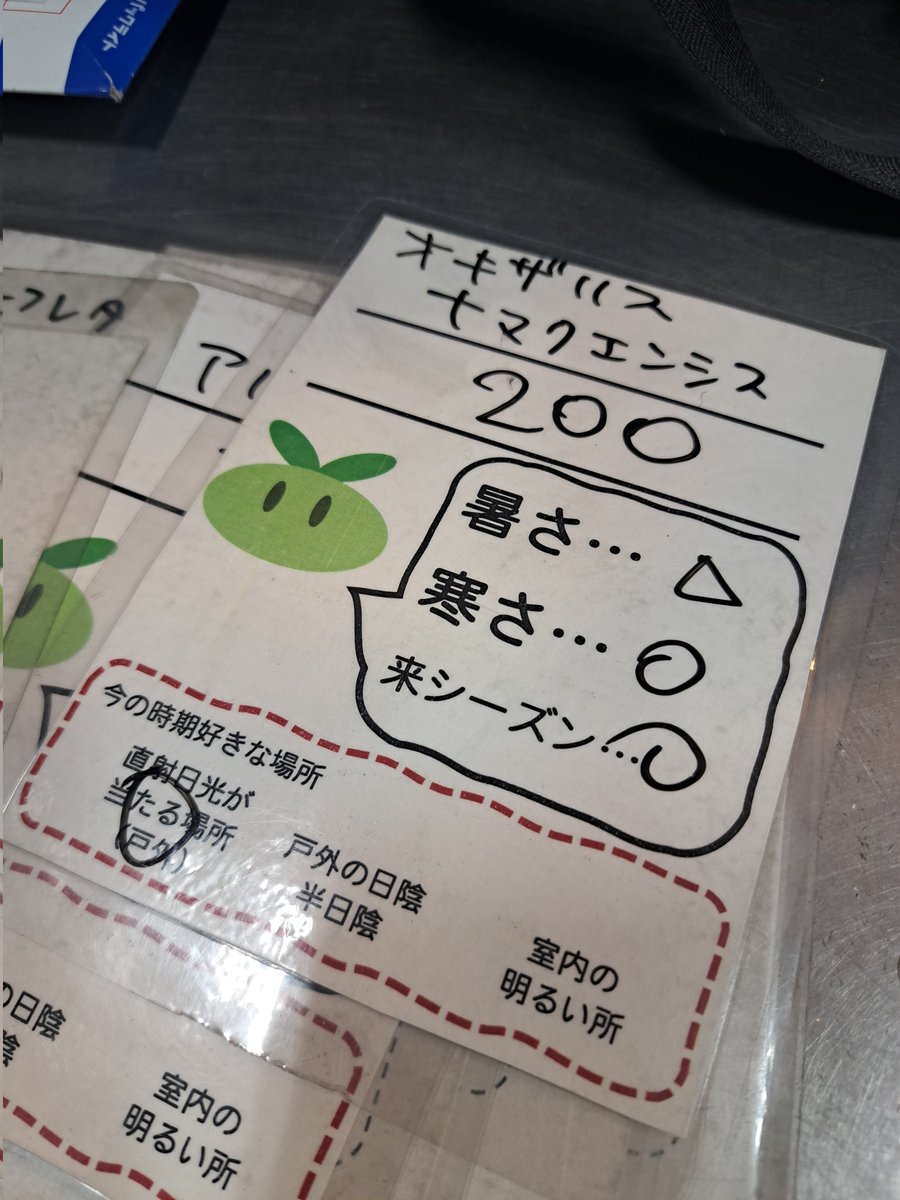 バックライト
オキザリス
ナマクエンシス
200
暑さ… △
寒さ… ○
来シーズン… ○
今の時期好きな場所
直射日光が
当たる場所
(戸外)
戸外の日陰
半日陰
室内の
明るい所
ーフレタ
ア
の日陰
陰
室内の
明るい所